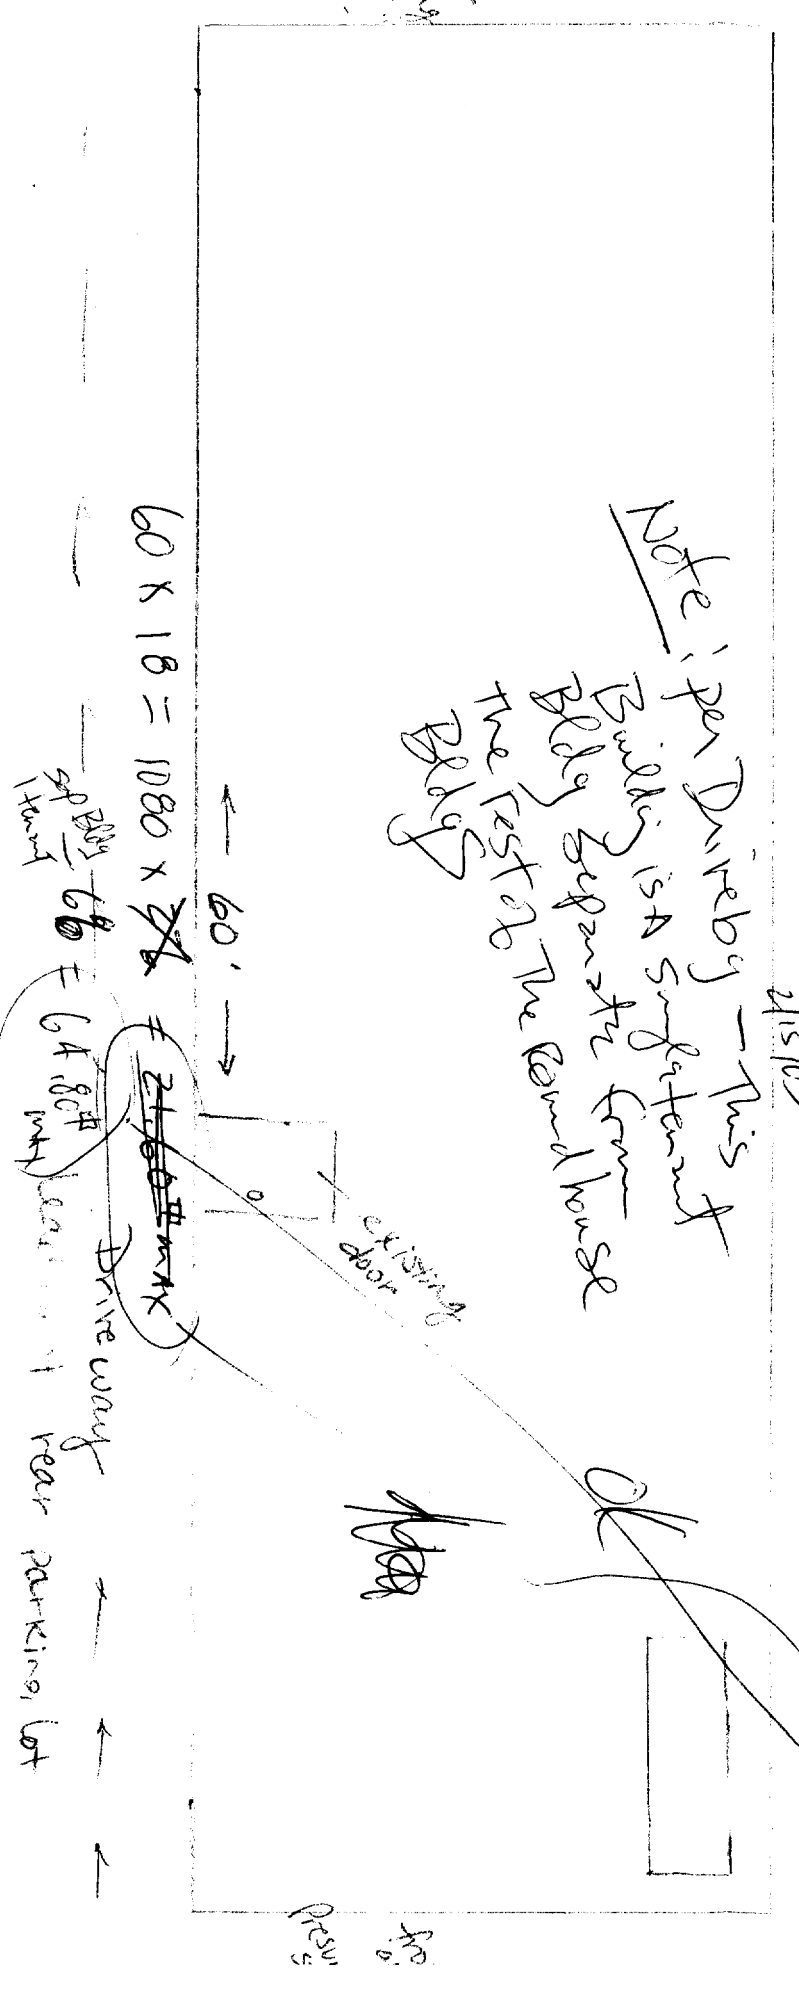 Note: per Driveby - This
Building is A Singletenant
Bldg Separate from
the rest of The Roundhouse
Bldgs
existing
door
← 60' →
60 x 18 = 1080 x = 21.60# MAX
Sep Bldg
1 tenant
6% = 64.80#
max
Driveway
rear parking lot
OK